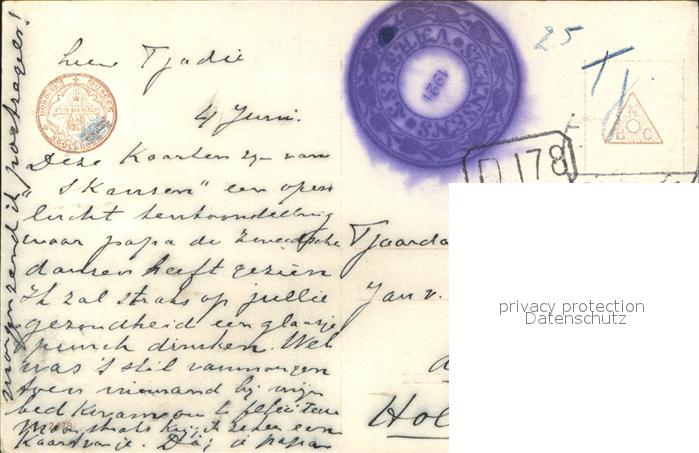 morgenzend ik portretten!
Lieve Tjadie
4 Juni.
Deze Kaarten zyn van
"Skansen" een open
lucht tentoonstelling
waar papa de Zweedsche
dansen heeft gezien
Ik zal straks op jullie
gezondheid een glaasje
punch drinken. Wel
was 't stil vanmorgen
toen niemand bij mijn
bed kwam om te feliciteeren
Maar straks krijg ik zeker een
Kaart van je. Dag je papa
SKANSENS VÅRFEST
1921
25
T
N
B C
D 178
Tjaarda
Jan v.
Hol
privacy protection
Datenschutz